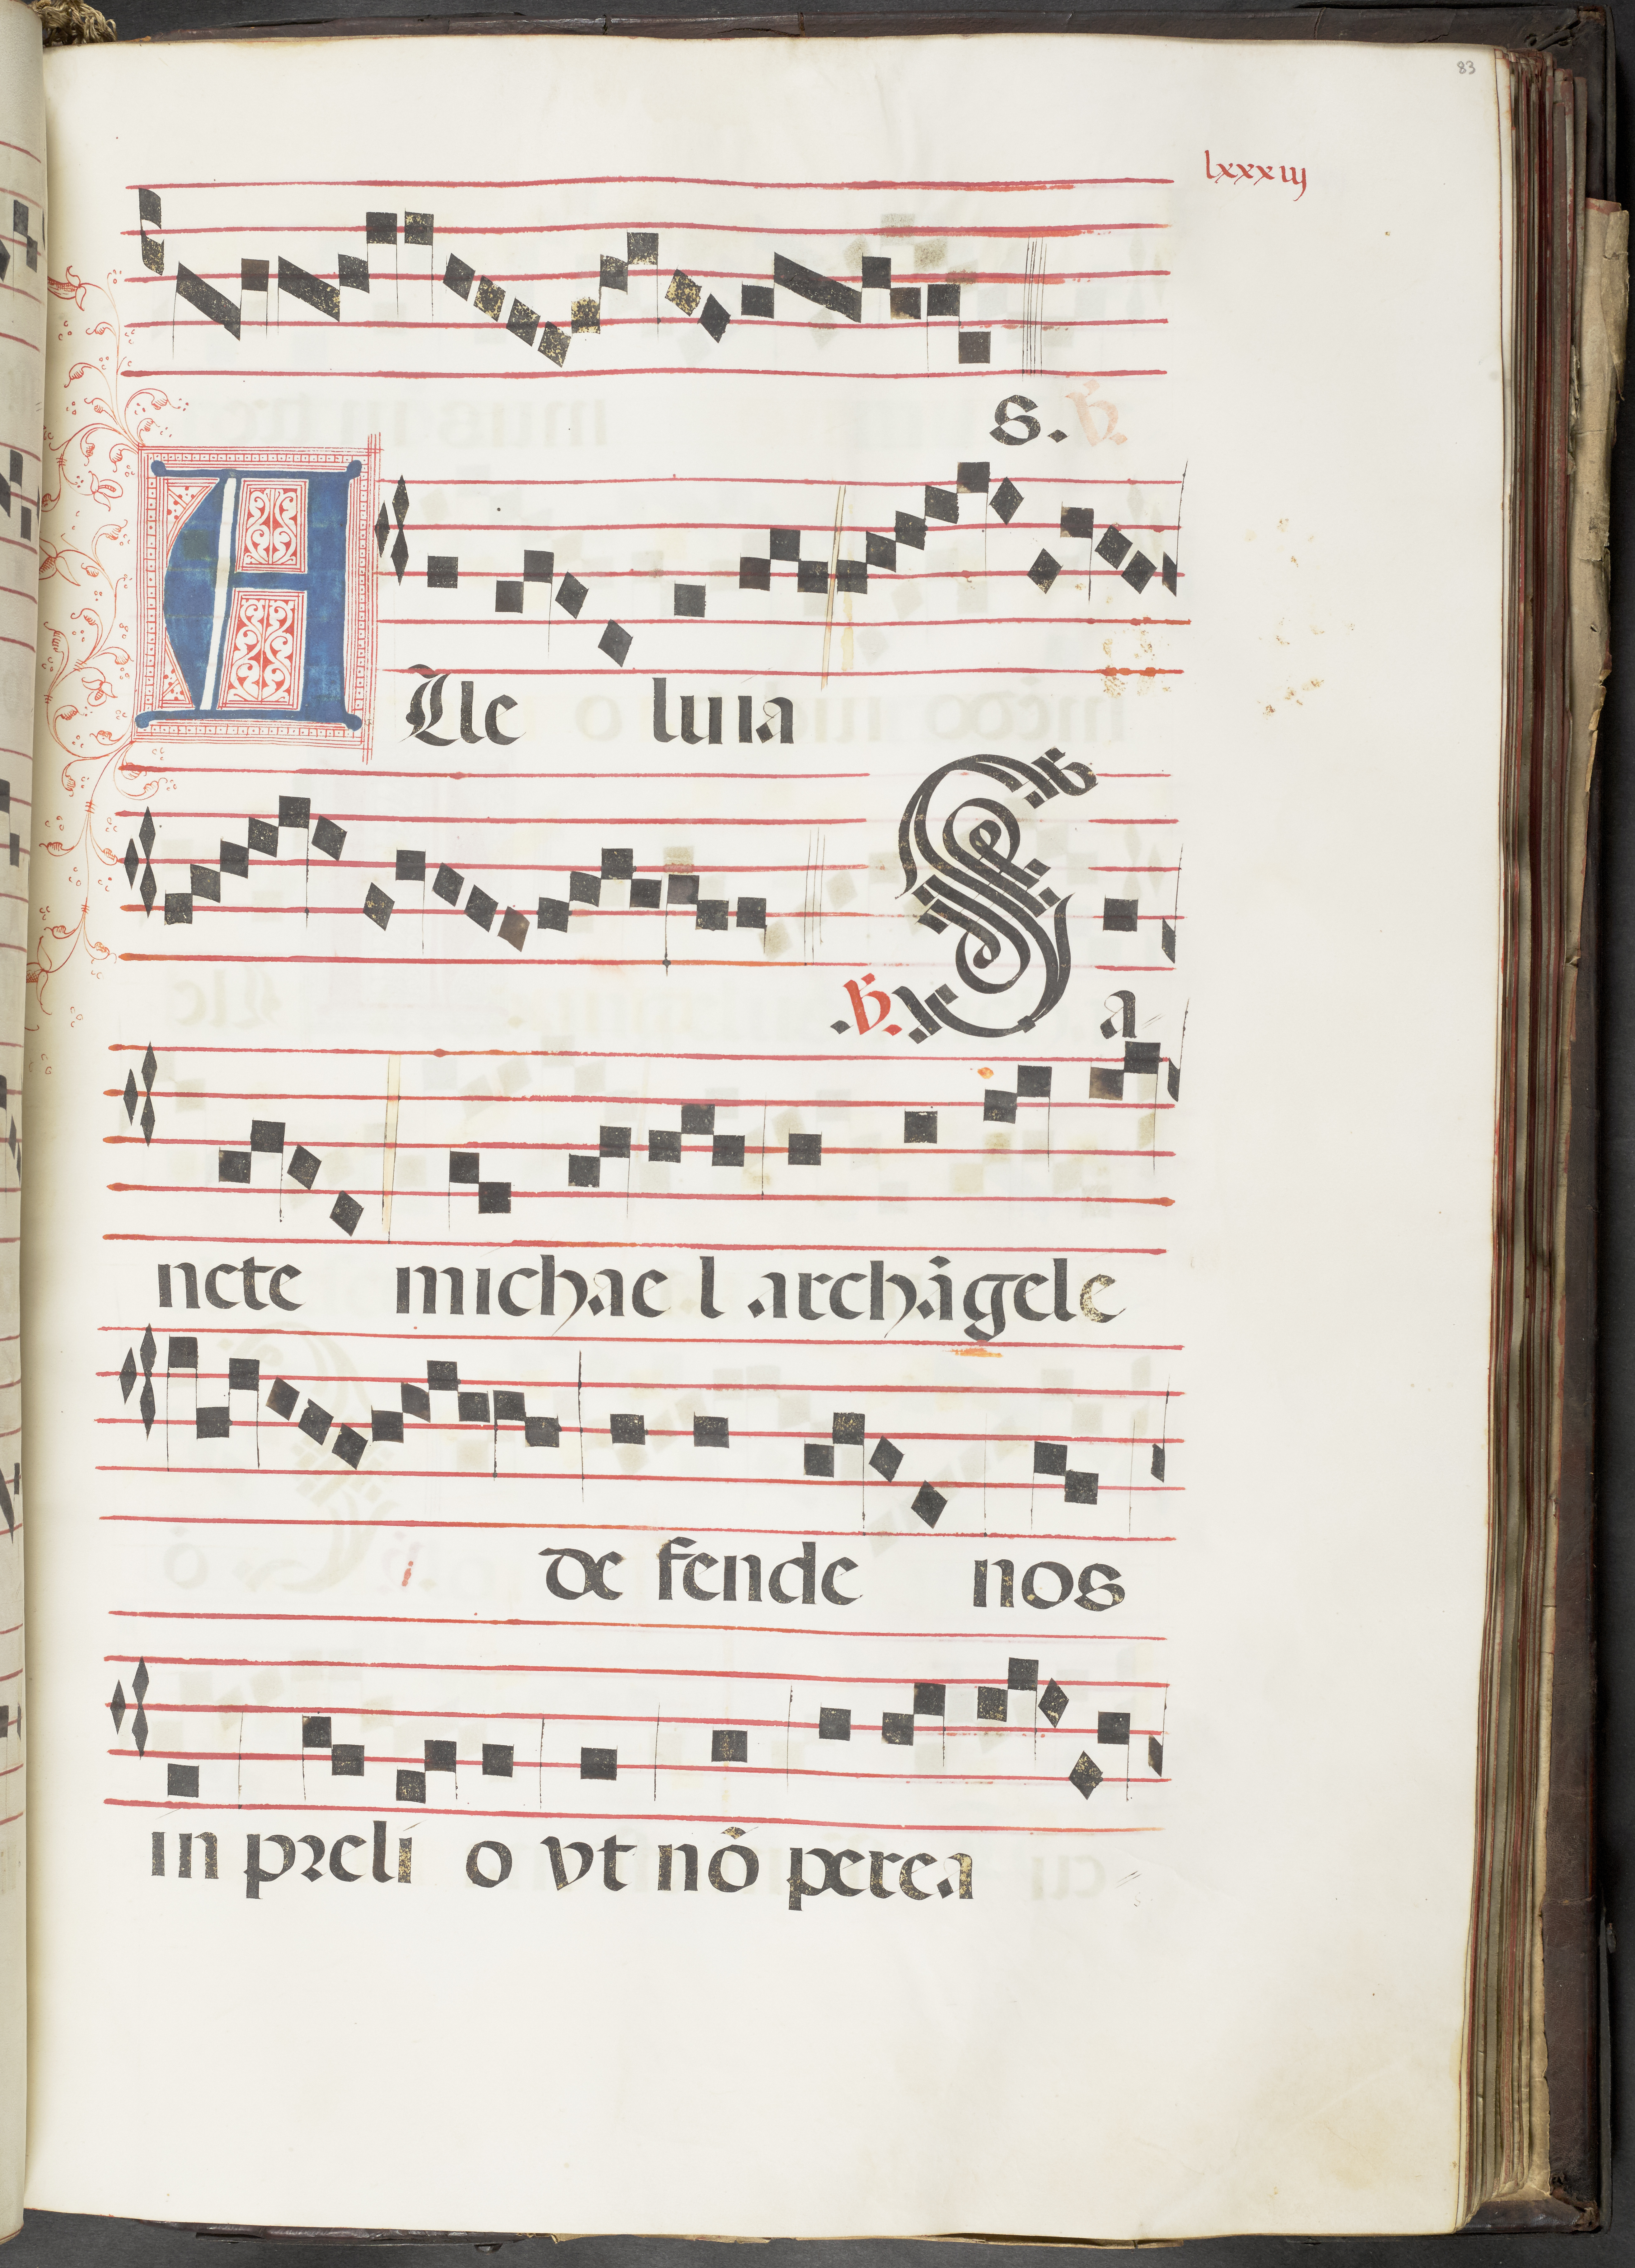 83
lxxxiij
s. ℣.
Alle luia
.℣. Sa
ncte michae l archãgele
de fende nos
in preli o vt nõ perea